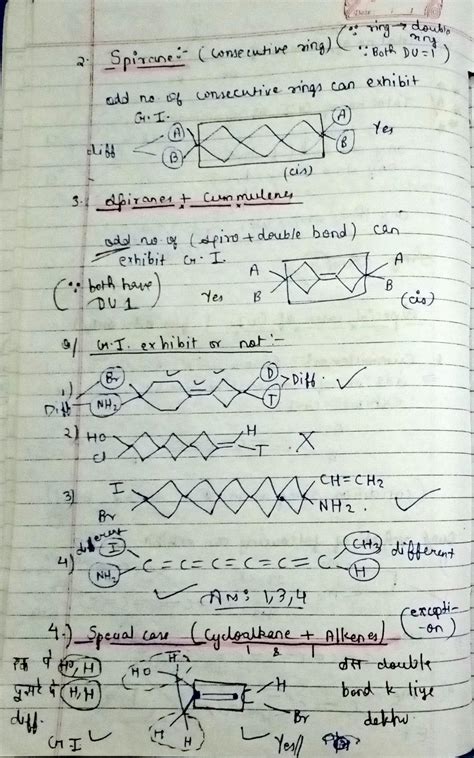 2. Spirane:- (consecutive ring) (∵ ring → double ring
∵ Both DU=1)
odd no. of consecutive rings can exhibit
G.I.
diff
A
B
A
B
Yes
(cis)
3. Spiranes + Cummulenes
odd no. of (spiro + double bond) can
exhibit G.I.
(∵ both have
DU 1)
Yes
A
B
A
B
(cis)
Q/ G.I. exhibit or not:-
1)
Diff
Br
NH₂
D
T
> Diff. ✓
2) HO
Cl
H
T
X
3)
I
Br
CH=CH₂
NH₂. ✓
4)
different
I
NH₂
C=C=C=C=C=C
CH₃
H
different
✓ Ans: 1,3,4
4.) Special case (Cycloalkane + Alkenes)
1 & 1
(excepti-
-on)
एक पे HO, H
दूसरे पे H, H
diff.
G.I ✓
HO
H
H
H
H
Br
double
bond k liye
dekho
✓ Yes//